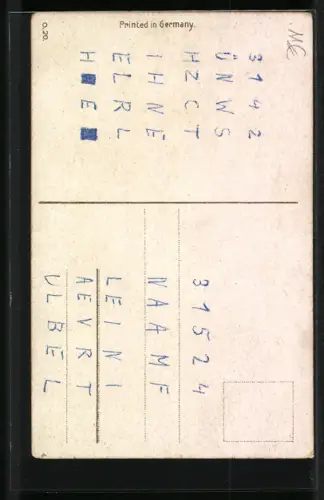 Printed in Germany.
0.20.
3 1 4 2
Ü N W S
H Z C T
I H N E
E L R L
H E
3 1 5 2 4
N A A M F
L E I N I
A E V R T
U L B E L